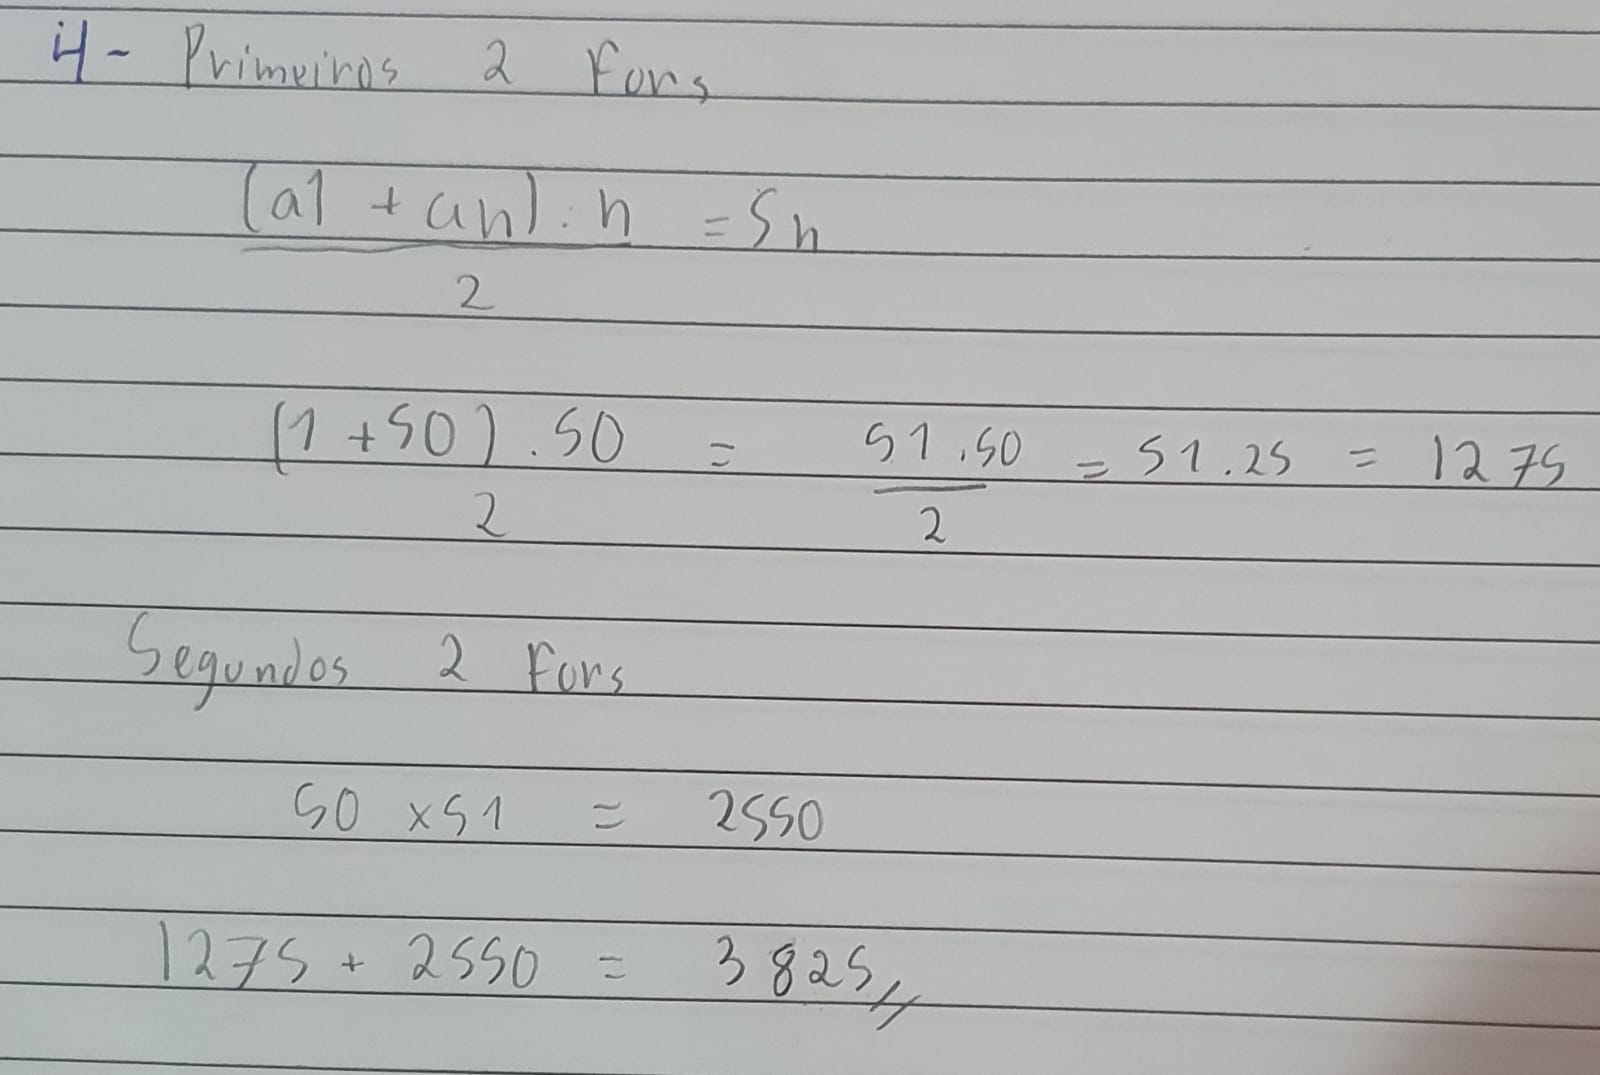 4- Primeiros 2 Fors
(a1 + an).n = Sn
2
(1 + 50).50 = 51.50 = 51.25 = 1275
2 2
Segundos 2 Fors
50 x 51 = 2550
1275 + 2550 = 3825//